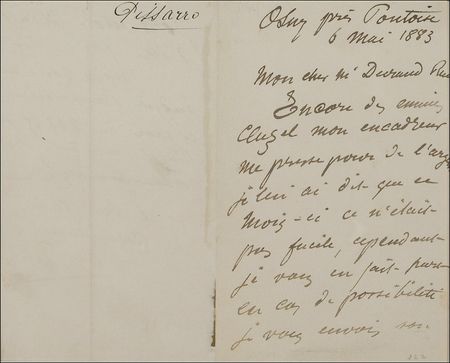 Pissarro
Osny près Pontoise
6 Mai 1883
Mon cher Mr Durand Rue
Encore des ennuis
Cluzel mon encadreur
me presse pour de l'arg
je lui ai dit que ce
mois-ci ce n'était
pas facile, cependant
je vous en fais part
en cas de possibilité
je vous envoie son